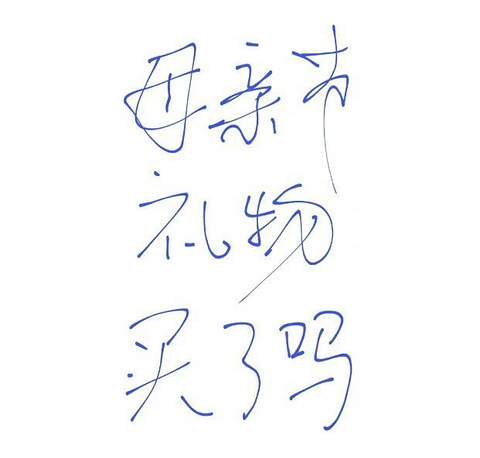 母亲节
礼物
买了吗